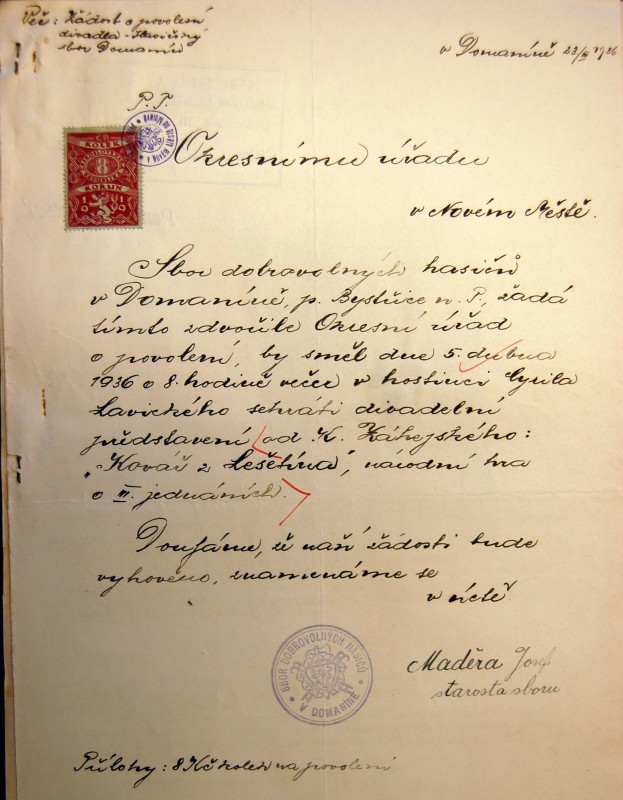 Věc: Žádost o povolení
divadla - Hasičský
sbor Domanín
v Domaníně 23/III 1936
P. T.
KOLEK
8
KORUN
Okresnímu úřadu
v Novém Městě.
Sbor dobravolných hasičů
v Domaníně, p. Bystřice n. P., žádá
tímto zdvořile Okresní úřad
o povolení, by směl dne 5. dubna
1936 o 8. hodině večer v hostinci Cyrila
Lavického sehráti divadelní
představení od K. Záhejského:
„Kovář z Lešetína", národní hra
o III. jednáních.
Doufáme, že naší žádosti bude
vyhověno, znamenáme se
v úctě.
Maděra Josef
starosta sboru
SBOR DOBROVOLNÝCH HASIČŮ
V DOMANÍNĚ
Přílohy: 8 Kč kolek na povolení